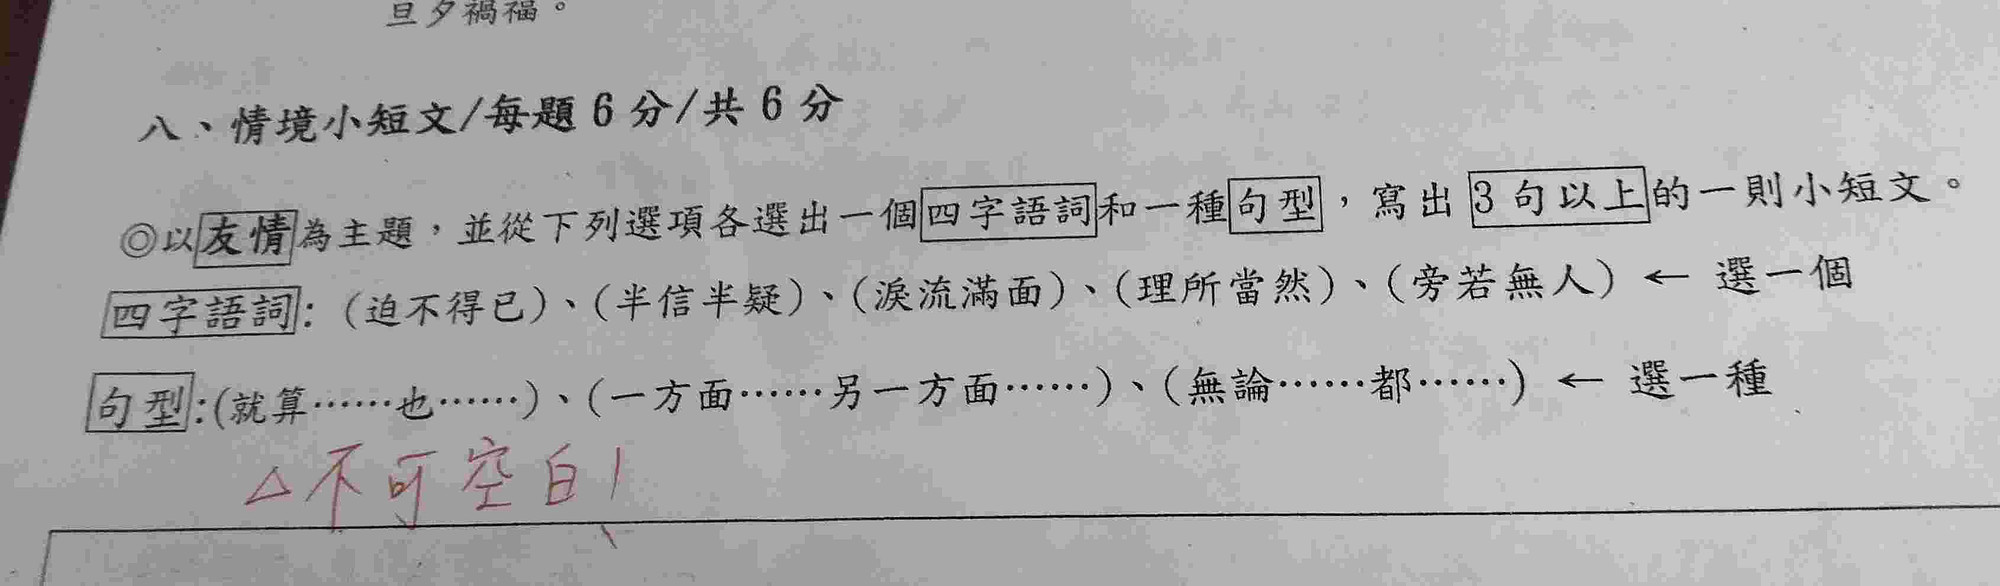 旦夕禍福。
八、情境小短文/每題 6 分/共 6 分
◎以友情為主題，並從下列選項各選出一個四字語詞和一種句型，寫出3 句以上的一則小短文。
四字語詞：(迫不得已)、(半信半疑)、(淚流滿面)、(理所當然)、(旁若無人) ← 選一個
句型:(就算……也……)、(一方面……另一方面……)、(無論……都……) ← 選一種
△不可空白!